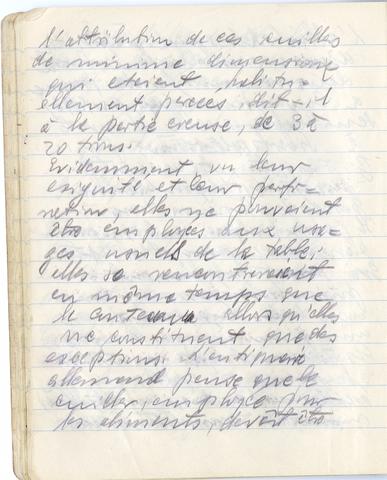 l'attribution de ces cuilles
de minime dimensions
qui etaient, habitu-
ellement percées, dit-il
à la partie creuse, de 3 à
20 trous.
Evidemment vu leur
exiguité et leur perfo-
ration, elles ne pouvaient
être employées aux usa-
ges usuels de la table;
elles se rencontreraient
en même temps que
le couteau alors qu'elles
ne constituent que des
exceptions. L'antiquaire
allemand pense que la
cuiller, employée pour
les aliments, devait être